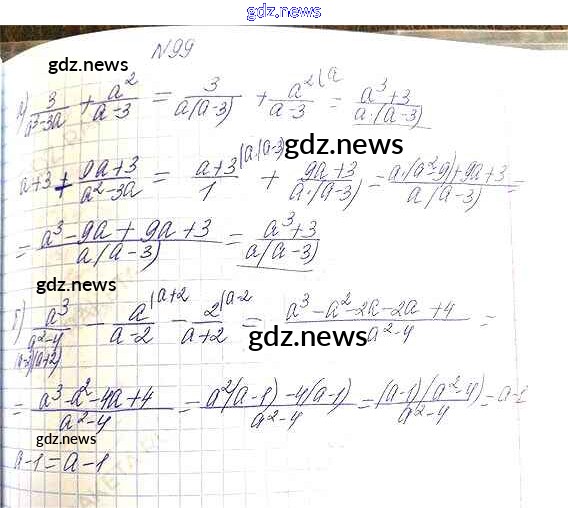 gdz.news
gdz.news
N99
а) 3/(a²-3a) + a²/(a-3) = 3/(a(a-3)) + a²/(a-3) (a = (a³+3)/(a·(a-3))
gdz.news
a+3 + (9a+3)/(a²-3a) = (a+3)/1 (a·(a-3) + (9a+3)/(a·(a-3)) = (a·(a²-9)+9a+3)/(a(a-3)) =
= (a³-9a+9a+3)/(a(a-3)) = (a³+3)/(a(a-3))
gdz.news
б) a³/(a²-4) - a/(a-2) (a+2 - 2/(a+2) (a-2 = (a³-a²-2a-2a+4)/(a²-4) =
(a-2)(a+2)
gdz.news
= (a³-a²-4a+4)/(a²-4) = (a²(a-1)-4(a-1))/(a²-4) = ((a-1)(a²-4))/(a²-4) = a-1
gdz.news
a-1=a-1
gdz.news